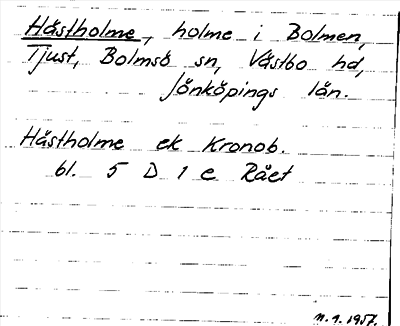 Hästholme, holme i Bolmen,
Tjust, Bolmsö sn, Västbo hd,
Jönköpings län.
Hästholme ek Kronob.
bl. 5 D 1 e Rået
m. 9. 1957.